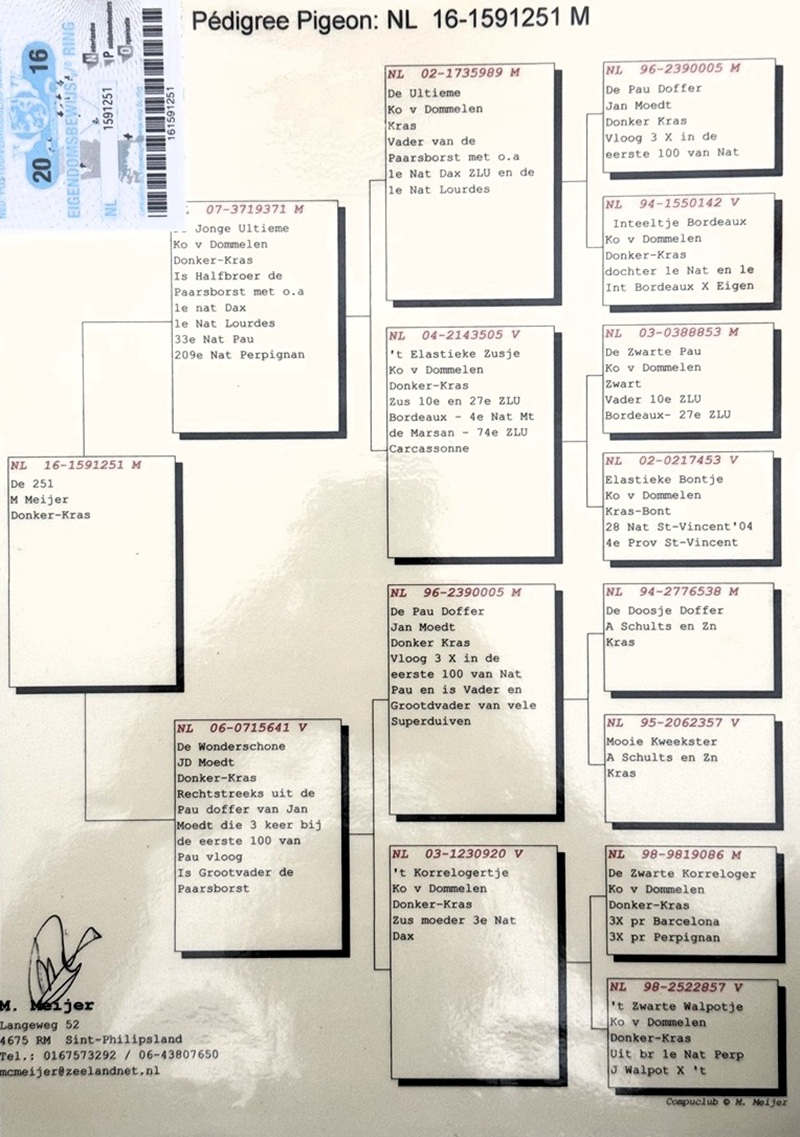 Pédigree Pigeon: NL 16-1591251 M
20 16
EIGENDOMSBEWIJS RING
NL 1591251
161591251
NL 16-1591251 M
De 251
M Meijer
Donker-Kras
07-3719371 M
Jonge Ultieme
Ko v Dommelen
Donker-Kras
Is Halfbroer de
Paarsborst met o.a
1e nat Dax
1e Nat Lourdes
33e Nat Pau
209e Nat Perpignan
NL 06-0715641 V
De Wonderschone
JD Moedt
Donker-Kras
Rechtstreeks uit de
Pau doffer van Jan
Moedt die 3 keer bij
de eerste 100 van
Pau vloog
Is Grootvader de
Paarsborst
NL 02-1735989 M
De Ultieme
Ko v Dommelen
Kras
Vader van de
Paarsborst met o.a
1e Nat Dax ZLU en de
1e Nat Lourdes
NL 04-2143505 V
't Elastieke Zusje
Ko v Dommelen
Donker-Kras
Zus 10e en 27e ZLU
Bordeaux - 4e Nat Mt
de Marsan - 74e ZLU
Carcassonne
NL 96-2390005 M
De Pau Doffer
Jan Moedt
Donker Kras
Vloog 3 X in de
eerste 100 van Nat
Pau en is Vader en
Grootdvader van vele
Superduiven
NL 03-1230920 V
't Korrelogertje
Ko v Dommelen
Donker-Kras
Zus moeder 3e Nat
Dax
NL 96-2390005 M
De Pau Doffer
Jan Moedt
Donker Kras
Vloog 3 X in de
eerste 100 van Nat
NL 94-1550142 V
Inteeltje Bordeaux
Ko v Dommelen
Donker-Kras
dochter 1e Nat en 1e
Int Bordeaux X Eigen
NL 03-0388853 M
De Zwarte Pau
Ko v Dommelen
Zwart
Vader 10e ZLU
Bordeaux- 27e ZLU
NL 02-0217453 V
Elastieke Bontje
Ko v Dommelen
Kras-Bont
28 Nat St-Vincent'04
4e Prov St-Vincent
NL 94-2776538 M
De Doosje Doffer
A Schults en Zn
Kras
NL 95-2062357 V
Mooie Kweekster
A Schults en Zn
Kras
NL 98-9819086 M
De Zwarte Korreloger
Ko v Dommelen
Donker-Kras
3X pr Barcelona
3X pr Perpignan
NL 98-2522857 V
't Zwarte Walpotje
Ko v Dommelen
Donker-Kras
Uit br 1e Nat Perp
J Walpot X 't
M. Meijer
Langeweg 52
4675 RM Sint-Philipsland
Tel.: 0167573292 / 06-43807650
mcmeijer@zeelandnet.nl
Compuclub © M. Meijer